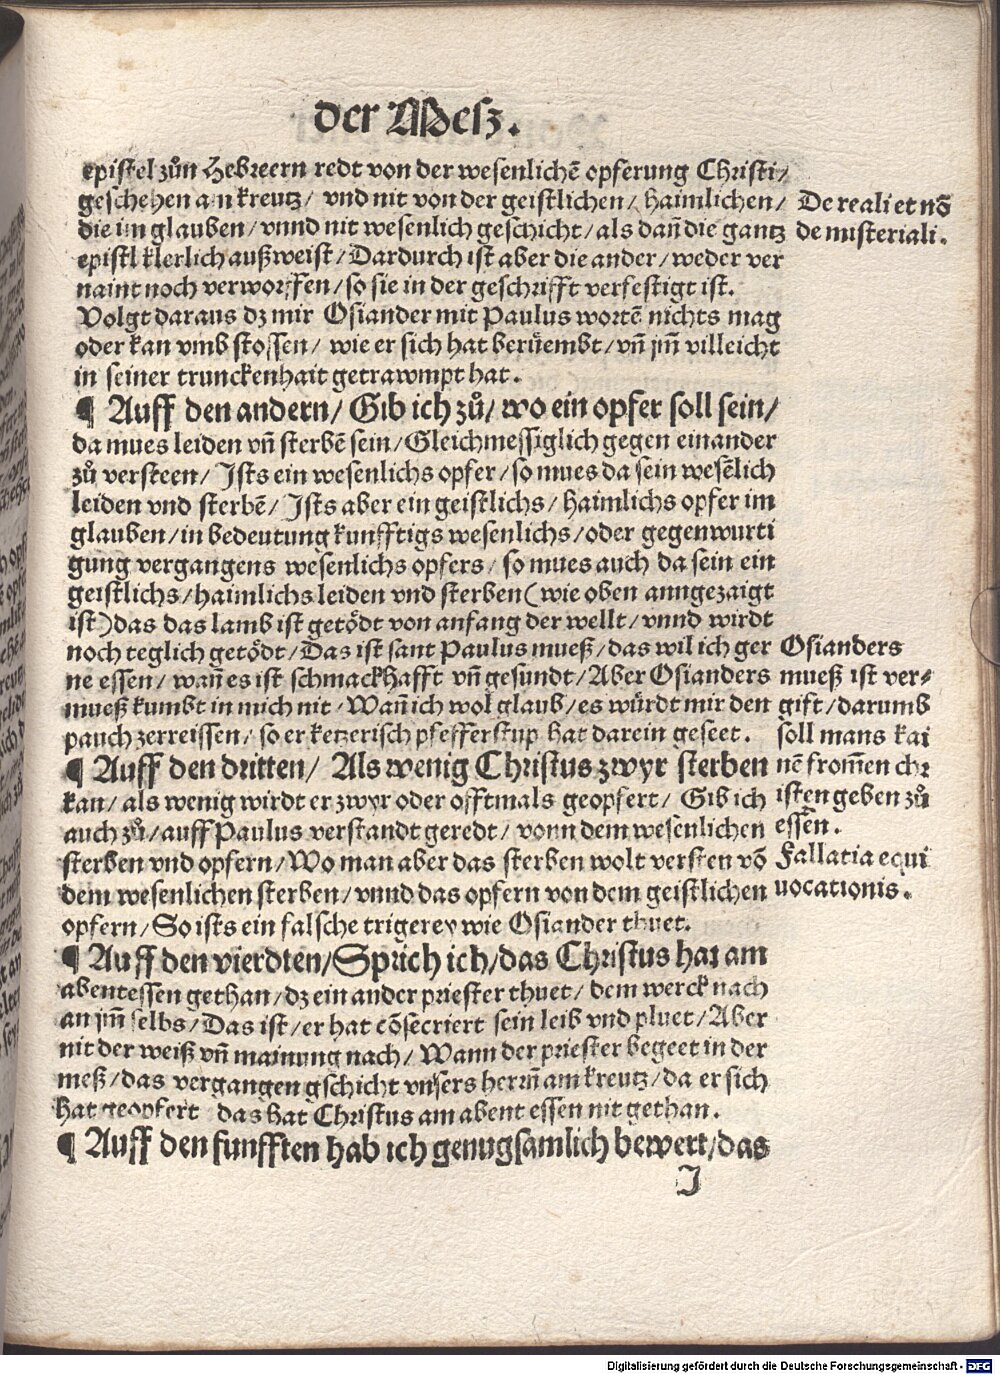 der Mesz.
epistel zůn Hebreern redt von der wesenlichẽ opferung Christi/
geschehen am kreutz/ vnd nit von der geistlichen/ haimlichen/
die im glauben/ vnnd nit wesenlich geschicht/ als dañ die gantz
epistl klerlich außweist/ Dardurch ist aber die ander/ weder ver
naint noch verworffen/ so sie in der geschrifft verfestigt ist.
Volgt daraus dz mir Osiander mit Paulus wortẽ nichts mag
oder kan vmb stossen/ wie er sich hat berüembt/ vñ jm̃ villeicht
in seiner trunckenhait getrawmpt hat.
De reali et nõ
de misteriali.
¶ Auff den andern/ Gib ich zů/ wo ein opfer soll sein/
da mues leiden vñ sterbẽ sein/ Gleichmessiglich gegen einander
zů versteen/ Ists ein wesenlichs opfer/ so mues da sein wesẽlich
leiden vnd sterbẽ/ Ists aber ein geistlichs/ haimlichs opfer im
glauben/ in bedeutung kunfftigs wesenlichs/ oder gegenwurti
gung vergangens wesenlichs opfers/ so mues auch da sein ein
geistlichs/ haimlichs leiden vnd sterben (wie oben anngezaigt
ist) das das lamb ist getödt von anfang der wellt/ vnnd wirdt
noch teglich getödt/ Das ist sant Paulus mueß/ das wil ich ger
ne essen/ wañ es ist schmackhafft vñ gesundt/ Aber Osianders
mueß kumbt in mich nit/ Wañ ich wol glaub/ es würdt mir den
pauch zerreissen/ so er ketzerisch pfefferstup hat darein geseet.
Osianders
mueß ist ver⸗
gift/ darumb
soll mans kai
nẽ from̃en chr
isten geben zů
essen.
¶ Auff den dritten/ Als wenig Christus zwyr sterben
kan/ als wenig wirdt er zwyr oder offtmals geopfert/ Gib ich
auch zů/ auff Paulus verstandt geredt/ vonn dem wesenlichen
sterben vnd opfern/ Wo man aber das sterben wolt versten võ
dem wesenlichen sterben/ vnnd das opfern von dem geistlichen
opfern/ So ists ein falsche trigerey wie Osiander thuet.
Fallatia equi
uocationis.
¶ Auff den vierdten/ Sprich ich/ das Christus hat am
abentessen gethan/ dz ein ander priester thuet/ dem werck nach
an jm̃ selbs/ Das ist/ er hat cõsecriert sein leib vnd pluet/ Aber
nit der weiß vñ mainung nach/ Wann der priester begeet in der
meß/ das vergangen gschicht vnsers herrñ am kreutz/ da er sich
hat geopfert das hat Christus am abent essen nit gethan.
¶ Auff den funfften hab ich genugsamlich bewert/ das
J
Digitalisierung gefördert durch die Deutsche Forschungsgemeinschaft - DFG